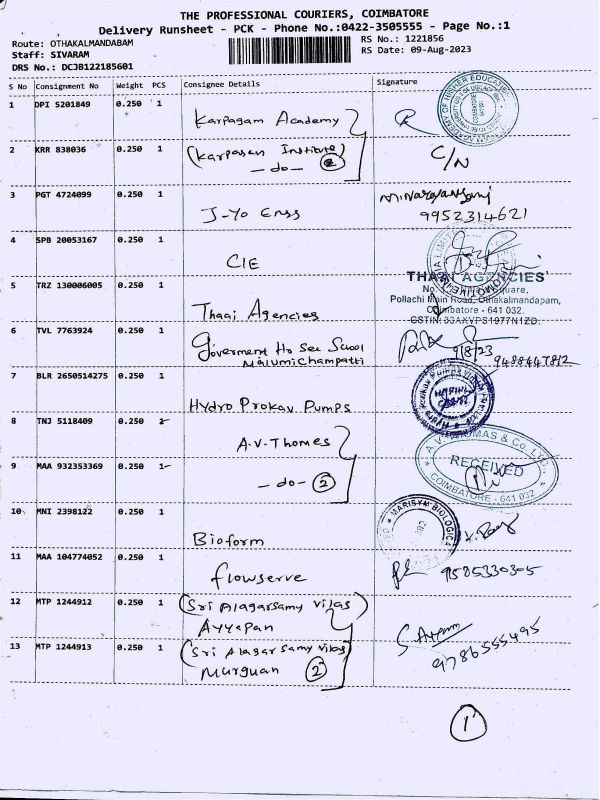 THE PROFESSIONAL COURIERS, COIMBATORE
Delivery Runsheet - PCK - Phone No.:0422-3505555 - Page No.:1
Route: OTHAKALMANDABAM
RS No.: 1221856
Staff: SIVARAM
RS Date: 09-Aug-2023
DRS No.: DCJB122185601
S No Consignment No Weight PCS Consignee Details Signature
1 DPI 5201849 0.250 1 Karpagam Academy
2 KRR 838036 0.250 1 (Karpagam Institute) C/N
- do - 2
3 PGT 4724099 0.250 1 J-Yo Engg
9952314621
4 SPB 20053167 0.250 1 CIE
5 TRZ 130006005 0.250 1 Thaai Agencies
THAAI AGENCIES
Pollachi Main Road, Othakalmandapam,
Coimbatore - 641 032.
GSTIN: 33AXVPS1977N1ZD.
6 TVL 7763924 0.250 1 Goverment Hr Sec Scool
Malumichampatti
9/8/23
7 BLR 2650514275 0.250 1 Hydro Prokav Pumps
8 TNJ 5118409 0.250 A.V. Thomes
9 MAA 932353369 0.250 1 - do - 2
A.V. THOMAS & CO. LTD.
RECEIVED
COIMBATORE - 641 032
10 MNI 2398122 0.250 1 Bioform
11 MAA 104774052 0.250 1 flowserve
9585330305
12 MTP 1244912 0.250 1 (Sri Alagarsamy Vilas)
Ayyapan
13 MTP 1244913 0.250 1 (Sri Alagarsamy Vilas)
Murguan 2
9786555495
1